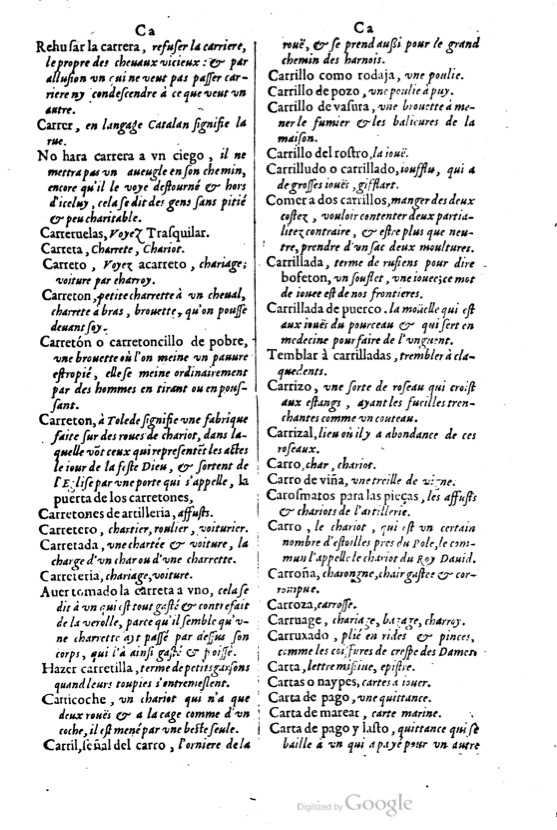 Ca
Rehusar la carrera, refuser la carriere,
le propre des chevaux vicieux : & par
allusion vn qui ne veut pas passer car-
riere ny condescendre à ce que veut vn
autre.
Carrer, en langage Catalan signifie la
rue.
No hara carrera a vn ciego, il ne
mettra pas vn aueugle en son chemin,
encore qu'il le voye destourné & hors
d'iceluy, cela se dit des gens sans pitié
& peu charitable.
Carreruelas, Voyez Trasquilar.
Carreta, Charrete, Chariot.
Carreto, Voyez acarreto, chariage;
voiture par charroy.
Carreton, petite charrette à vn cheual,
charrete à bras, brouette, qu'on pousse
deuant soy.
Carretón o carretoncillo de pobre,
vne brouette où l'on meine vn pauure
estropié, elle se meine ordinairement
par des hommes en tirant ou en pous-
sant.
Carreton, à Tolede signifie vne fabrique
faite sur des roues de chariot, dans la-
quelle võt ceux qui representẽt les actes
le iour de la feste Dieu, & sortent de
l'Eglise par vne porte qui s'appelle, la
puerta de los carretones,
Carretones de artilleria, affusts.
Carretero, chartier, roulier, voiturier.
Carretada, vne chartée & voiture, la
charge d'vn char ou d'vne charrette.
Carreteria, chariage, voiture.
Auer tomado la carreta a vno, cela se
dit à vn qui est tout gasté & contrefait
de la verolle, parce qu'il semble qu'v-
ne charrette ayt passé par dessus son
corps, qui l'à ainsi gasté & poissé.
Hazer carretilla, terme de petits garsons
quand leurs toupies s'entremeslent.
Carricoche, vn chariot qui n'a que
deux rouës & a la cage comme d'vn
coche, il est mené par vne beste seule.
Carril, señal del carro, l'orniere de la
Ca
rouë, & se prend aussi pour le grand
chemin des harnois.
Carrillo como rodaja, vne poulie.
Carrillo de pozo, vne poulie à puy.
Carrillo de vasura, vne brouette à me-
ner le fumier & les balieures de la
maison.
Carrillo del rostro, la iouë.
Carrilludo o carrillado, iouffiu, qui a
de grosses iouës, giffart.
Comer a dos carrillos, manger des deux
costez, vouloir contenter deux partia-
litez contraire, & est ce plus que neu-
tre, prendre d'vn sac deux moultures.
Carrillada, terme de rufiens pour dire
bofeton, vn souflet, vne iouee; ce mot
de iouee est de nos frontieres.
Carrillada de puerco. la moüelle qui est
aux iouës du pourceau & qui sert en
medecine pour faire de l'vnguent.
Temblar à carrilladas, trembler à cla-
quedents.
Carrizo, vne sorte de roseau qui croist
aux estangs, ayant les fueilles tren-
chantes comme vn couteau.
Carrizal, lieu où il y a abondance de ces
roseaux.
Carro, char, chariot.
Carro de viña, vne treille de vigne.
Carosmatos para las pieças, les affusts
& chariots de l'artillerie.
Carro, le chariot, qui est vn certain
nombre d'estoilles pres du Pole, le com-
mun l'appelle le chariot du Roy Dauid.
Carroña, charongne, chair gastee & cor-
rompue.
Carroza, carrosse.
Carruage, chariage, bagage, charroy.
Carruxado, plié en rides & pinces,
comme les coiffures de crespe des Dames
Carta, lettre missiue, epistre.
Cartas o naypes, cartes a iouer.
Carta de pago, vne quittance.
Carta de marear, carte marine.
Carta de pago y lasto, quittance qui se
baille à vn qui a payé pour vn autre
Digitized by Google